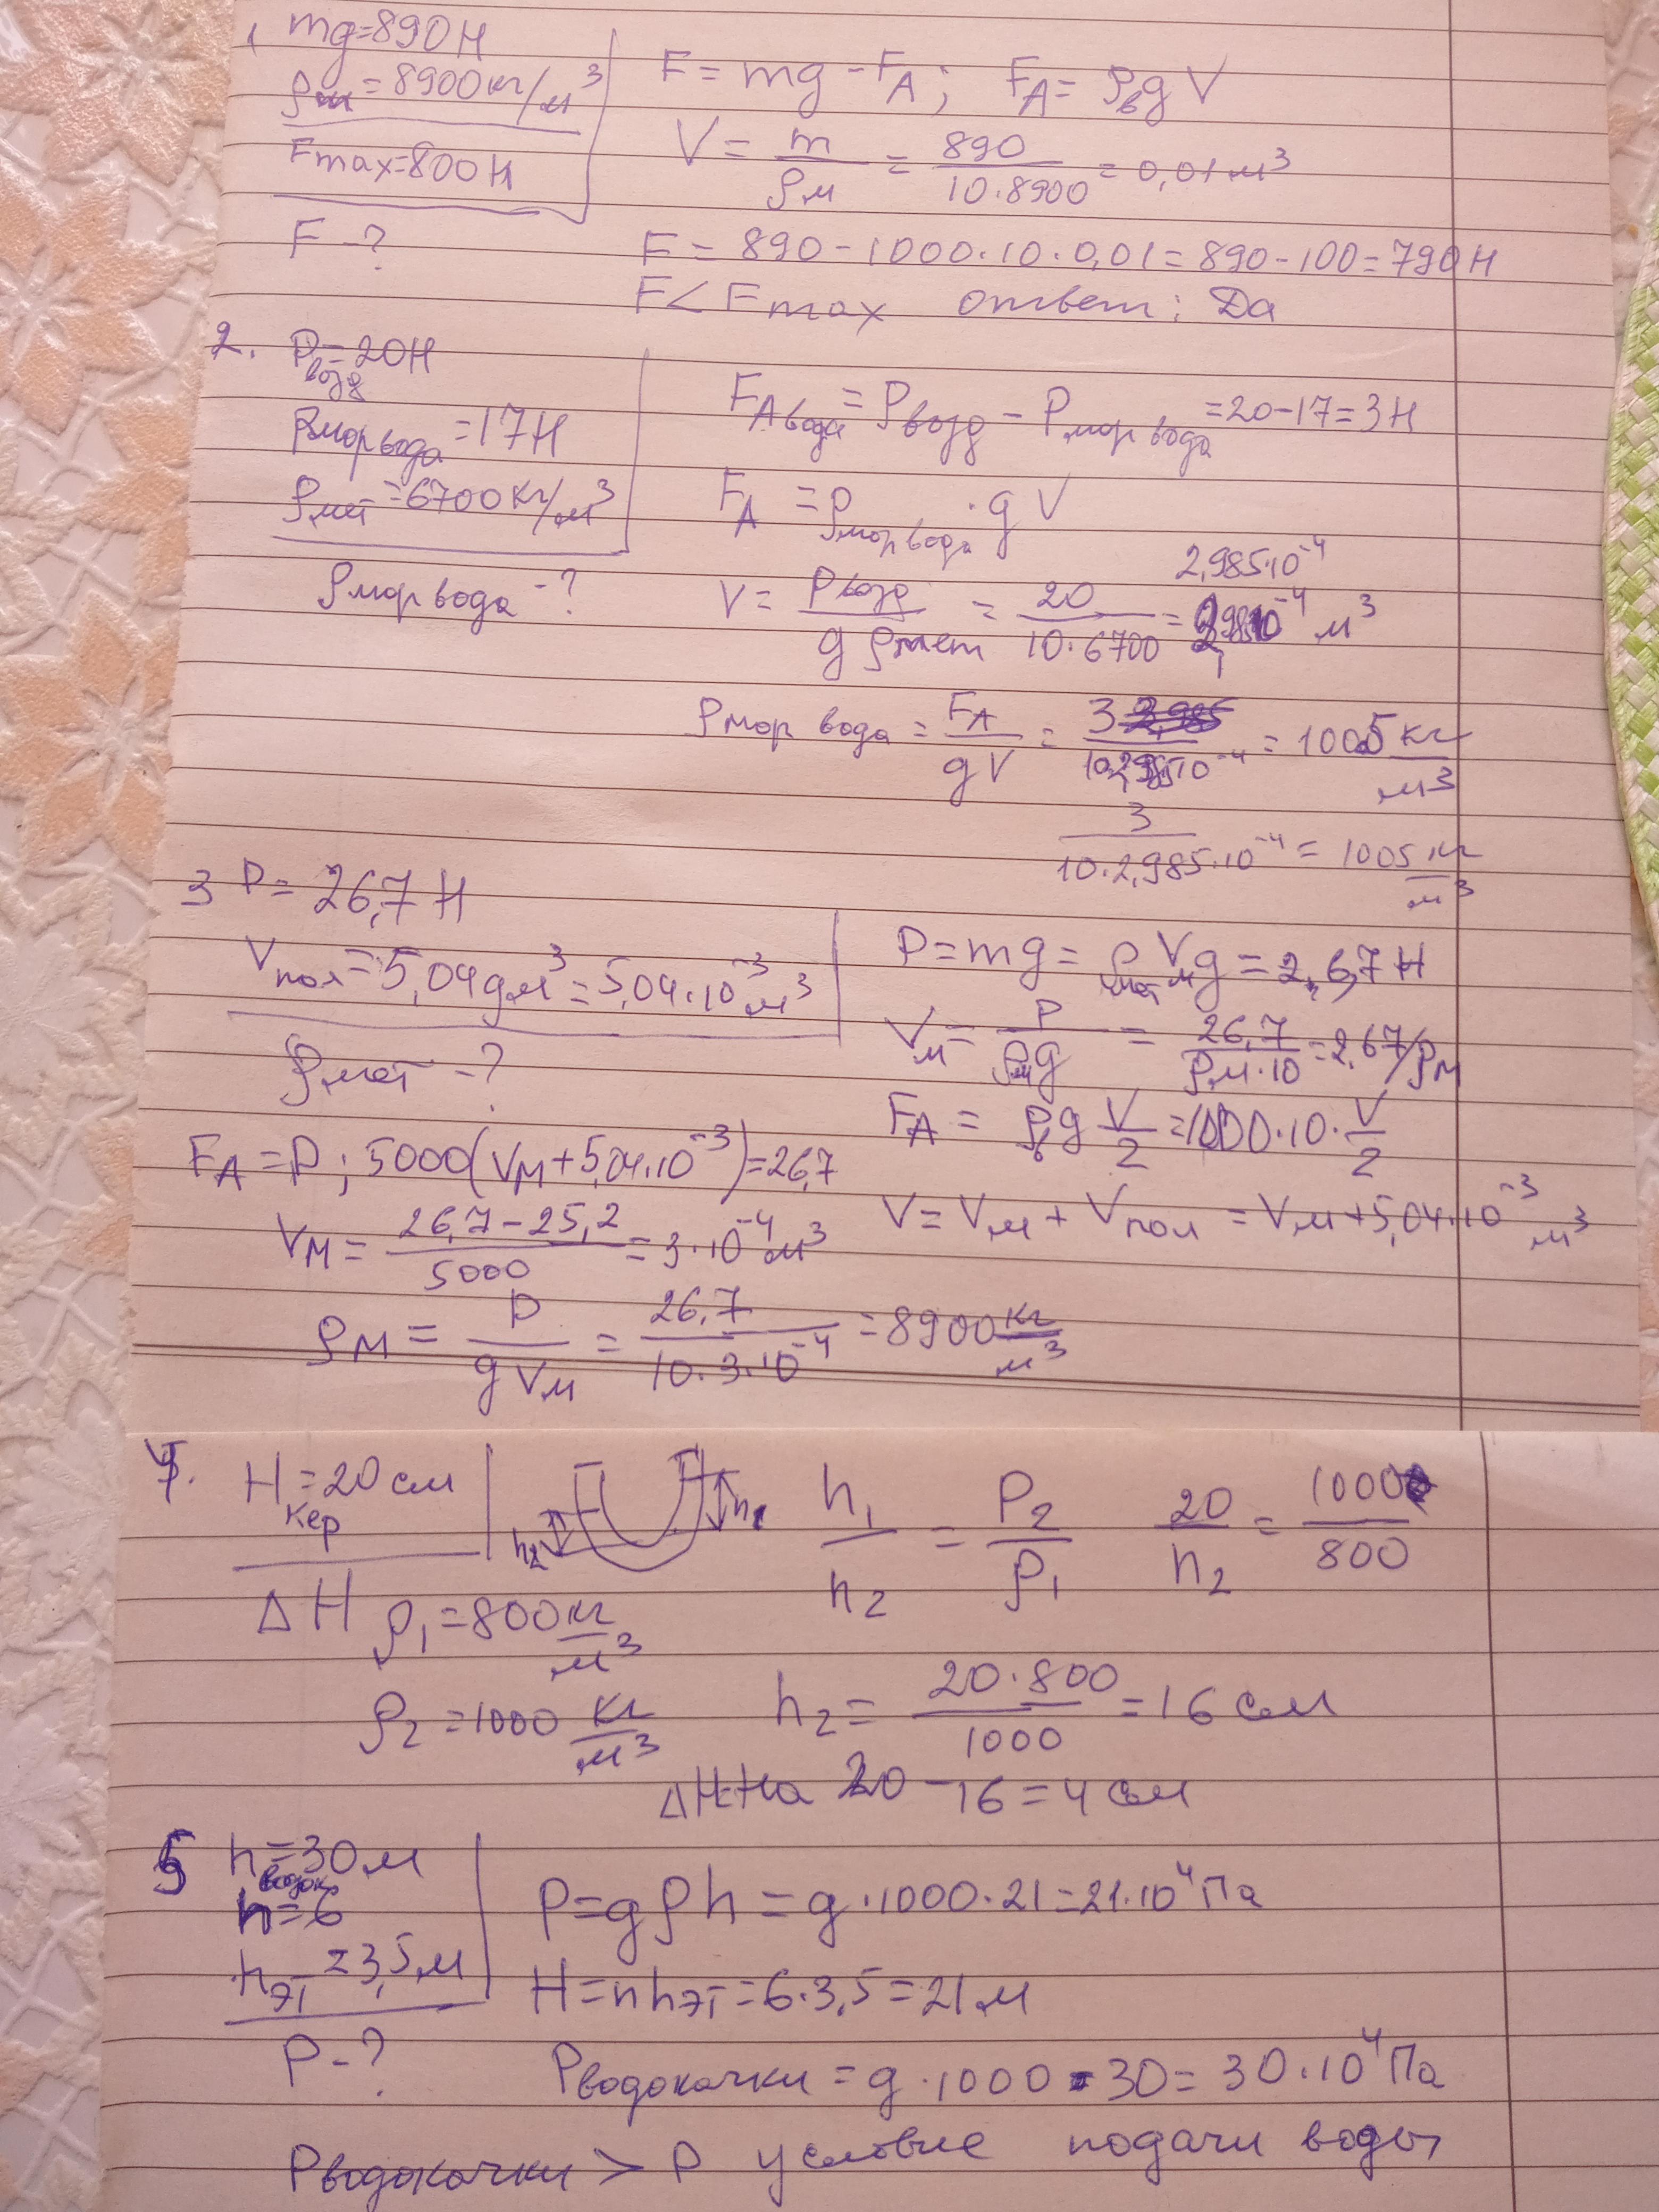 1 mg=890Н
ρм=8900кг/м³
Fmax=800Н
F-?
F=mg-F_A; F_A=ρвgV
V=m/ρм=890/10·8900=0,01м³
F=890-1000·10·0,01=890-100=790Н
F<Fmax ответ: Да
2. Pвозд=20Н
Pмор вода=17Н
ρмет=6700кг/м³
ρмор вода-?
F_A вода=Pвозд-Pмор вода=20-17=3Н
F_A=ρмор вода·gV
2,985·10⁻⁴
V=Pвозд/gρмет=20/10·6700= м³
ρмор вода=F_A/gV=3/10·2,985·10⁻⁴=1005кг/м³
3/10·2,985·10⁻⁴=1005кг/м³
3 P=26,7Н
Vпол=5,04дм³=5,04·10⁻³м³
ρмет-?
P=mg=ρмет Vм g=26,7Н
Vм=P/ρмg=26,7/ρм·10=2,67/ρм
F_A=ρвgV/2=1000·10·V/2
V=Vм+Vпол=Vм+5,04·10⁻³м³
F_A=P; 5000(Vм+5,04·10⁻³)=26,7
Vм=26,7-25,2/5000=3·10⁻⁴м³
ρм=P/gVм=26,7/10·3·10⁻⁴=8900кг/м³
4. Hкер=20см
ΔH
ρ₁=800кг/м³
ρ₂=1000кг/м³
h₂ h₁
h₁/h₂=ρ₂/ρ₁ 20/h₂=1000/800
h₂=20·800/1000=16см
ΔH=на 20-16=4см
5 hводок=30м
n=6
hэт=3,5м
P-?
P=gρh=g·1000·21=21·10⁴Па
H=nhэт=6·3,5=21м
Pводокачки=g·1000·30=30·10⁴Па
Pводокачки>P условие подачи воды